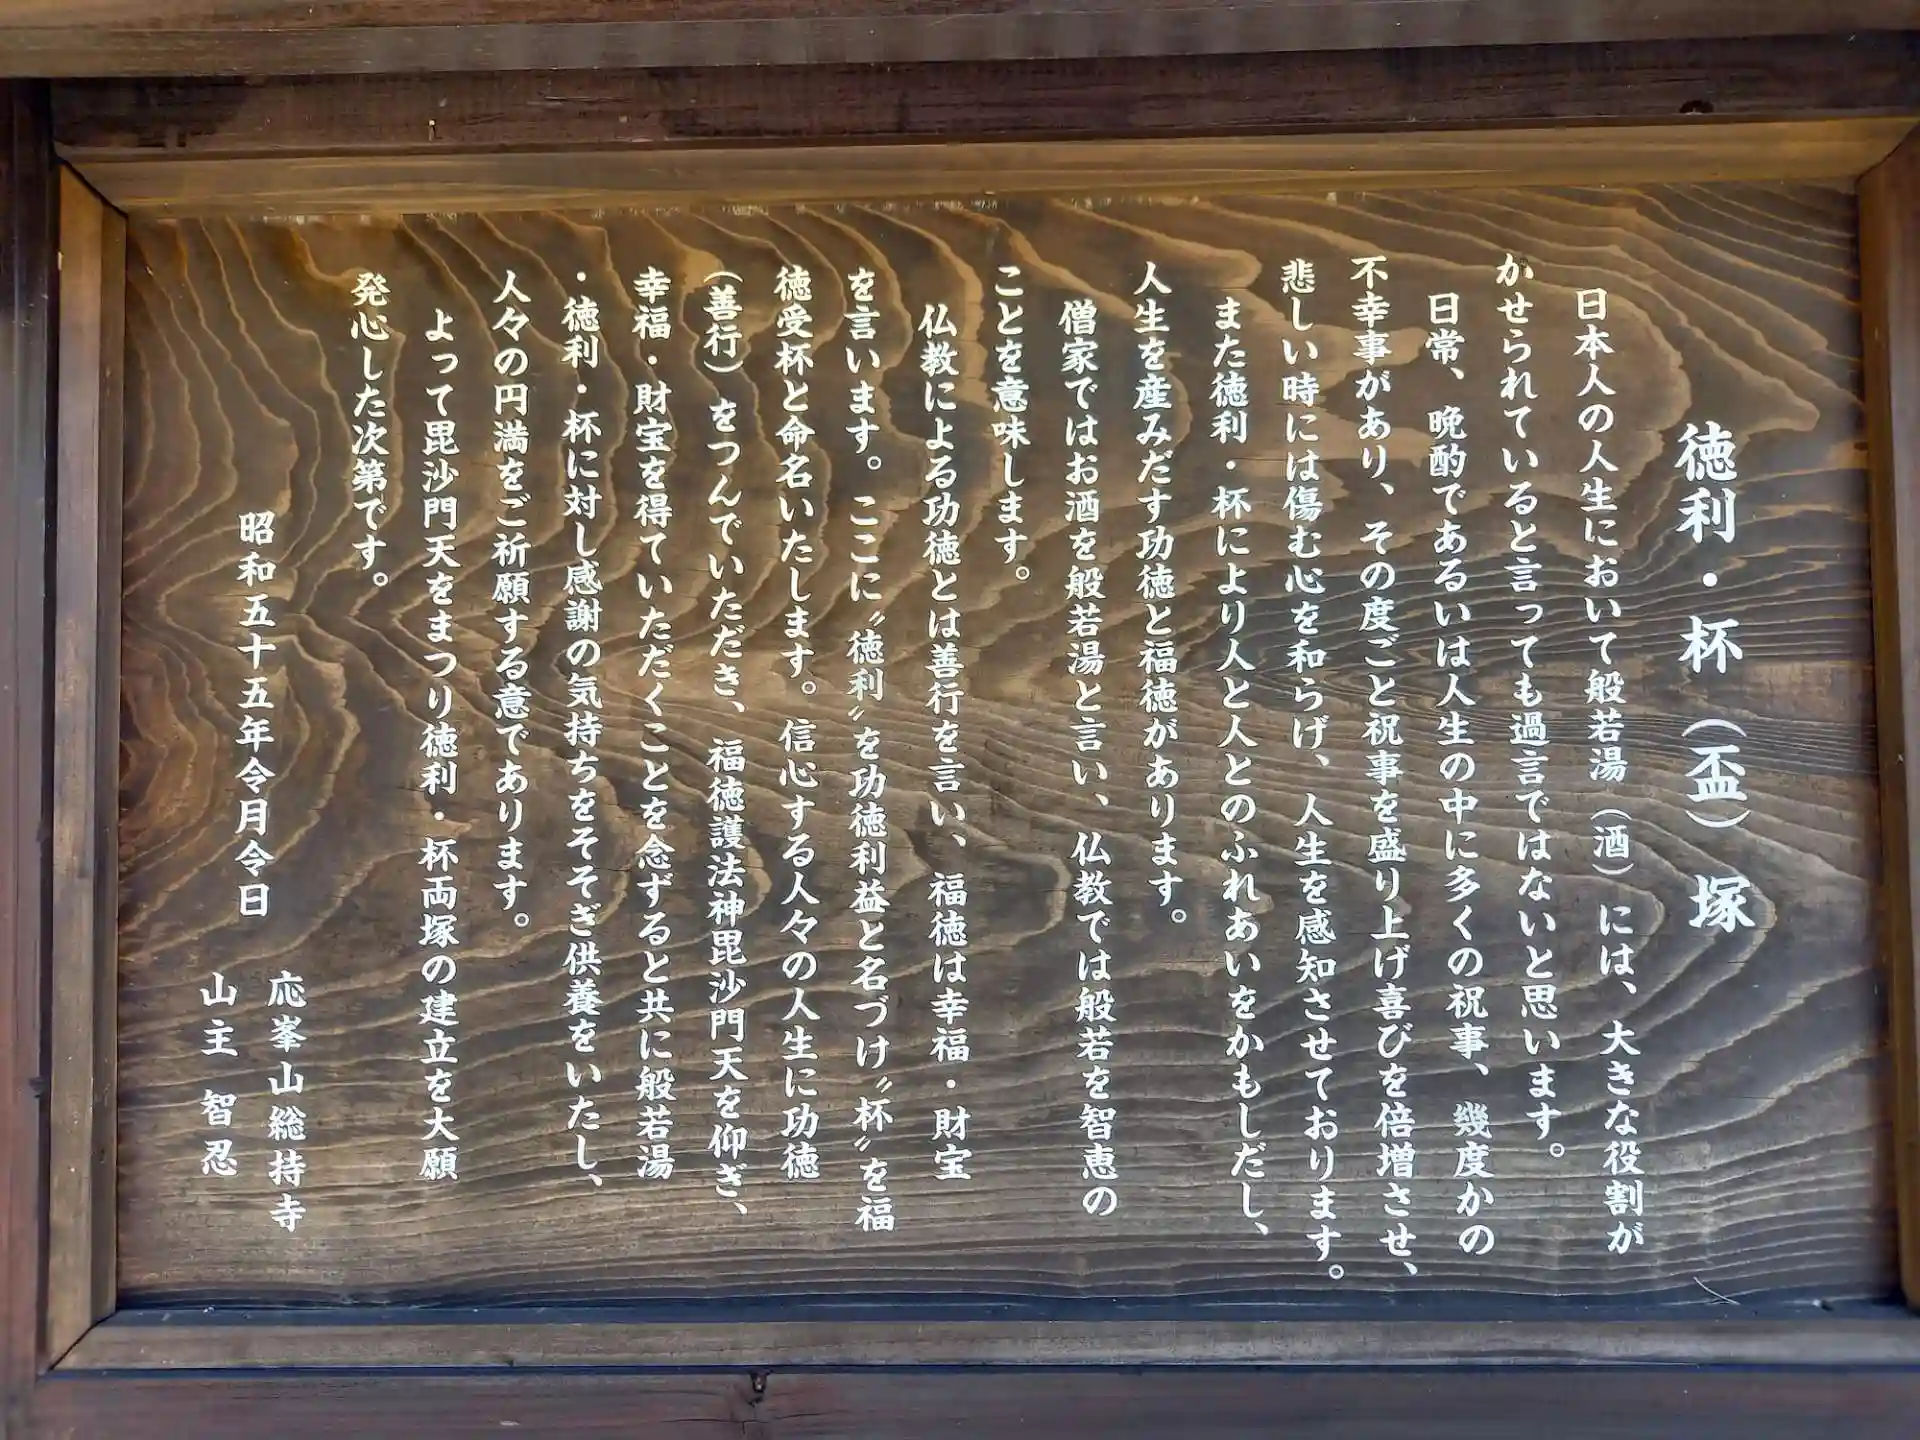 徳利・杯（盃）塚
日本人の人生において般若湯（酒）には、大きな役割が
かせられていると言っても過言ではないと思います。
日常、晩酌であるいは人生の中に多くの祝事、幾度かの
不幸事があり、その度ごと祝事を盛り上げ喜びを倍増させ、
悲しい時には傷む心を和らげ、人生を感知させております。
また徳利・杯により人と人とのふれあいをかもしだし、
人生を産みだす功徳と福徳があります。
僧家ではお酒を般若湯と言い、仏教では般若を智恵の
ことを意味します。
仏教による功徳とは善行を言い、福徳は幸福・財宝
を言います。ここに〝徳利〟を功徳利益と名づけ〝杯〟を福
徳受杯と命名いたします。信心する人々の人生に功徳
（善行）をつんでいただき、福徳護法神毘沙門天を仰ぎ、
幸福・財宝を得ていただくことを念ずると共に般若湯
・徳利・杯に対し感謝の気持ちをそそぎ供養をいたし、
人々の円満をご祈願する意であります。
よって毘沙門天をまつり徳利・杯両塚の建立を大願
発心した次第です。
昭和五十五年令月令日
応峯山総持寺
山主 智忍